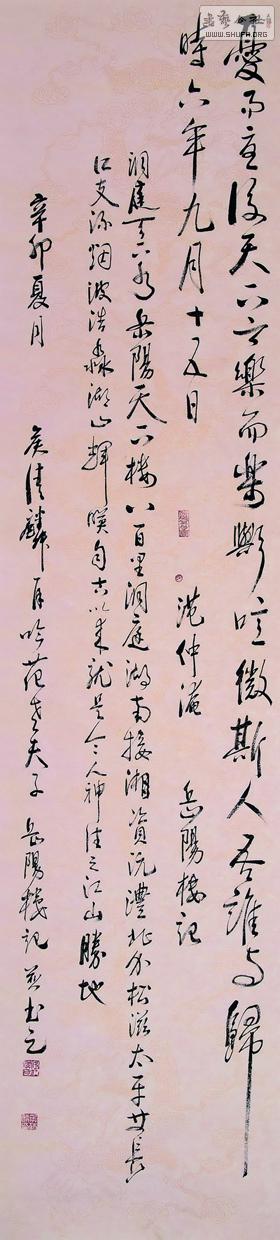 憂而憂後天下之樂而樂歟噫微斯人吾誰與歸
時六年九月十五日
范仲淹 岳陽樓記
洞庭天下水岳陽天下樓八百里洞庭湖南接湘資沅澧北分松滋太平
長江支流烟波浩淼湖山輝映自古以來就是令人神往之江山勝地
辛卯夏月
吟范老夫子岳陽樓記 并書之
WWW.SHUFH.ORG